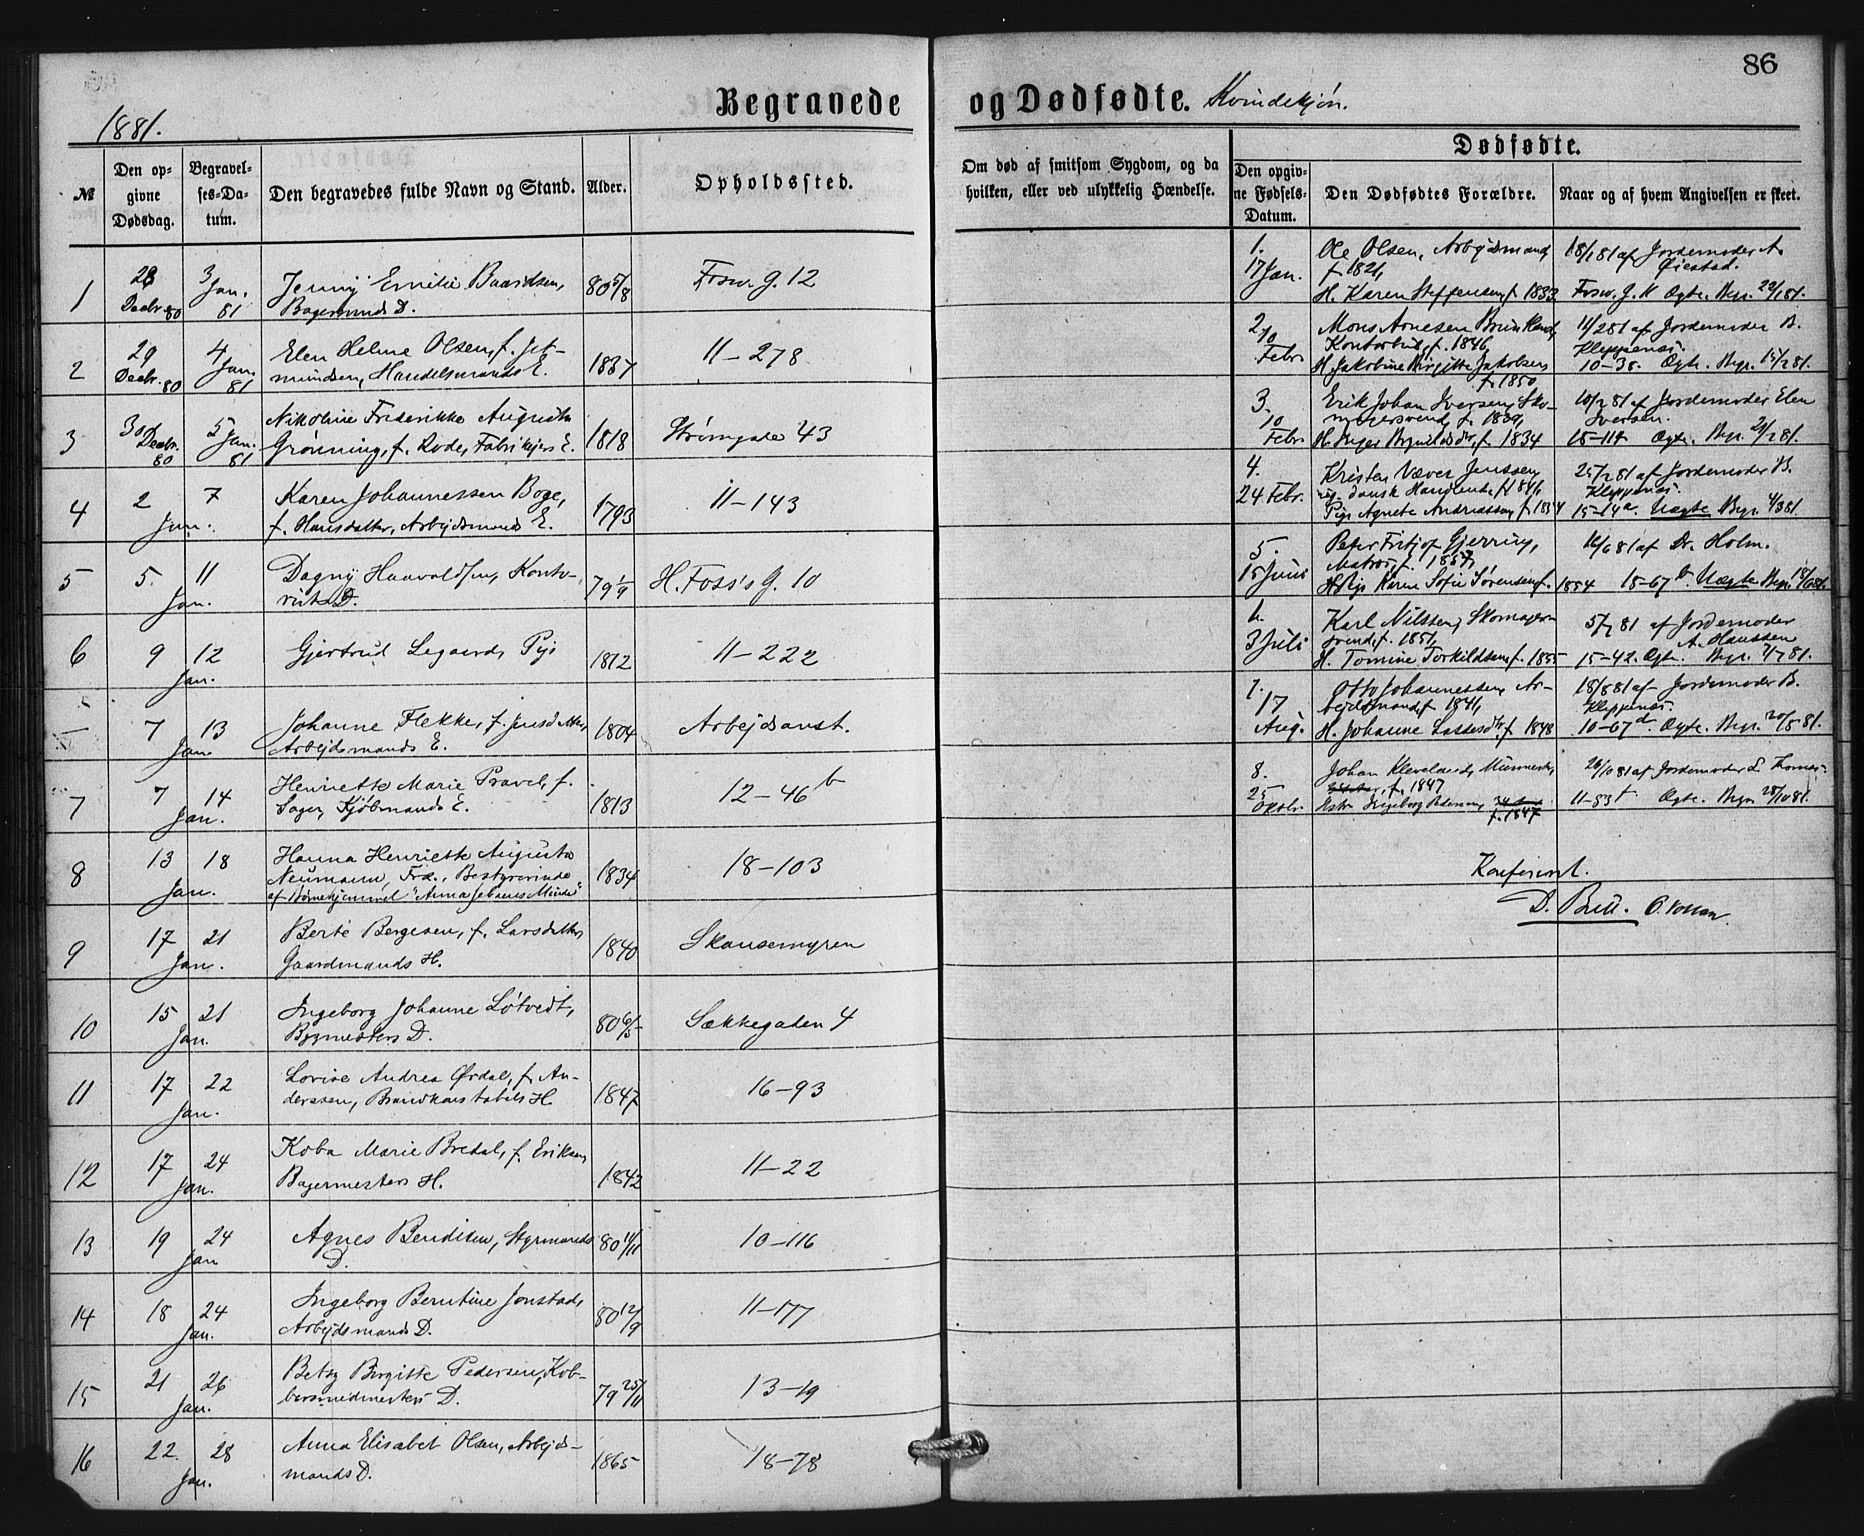 86
1881.
Begravede og Dødfødte. Kvindekjøn.
№
Den opgivne Dødsdag.
Begravelses-Datum.
Den begravedes fulde Navn og Stand.
Alder.
Opholdssted.
Om død af smitsom Sygdom, og da hvilken, eller ved ulykkelig Hændelse.
Dødfødte.
Den opgivne Fødsels-Datum.
Den Dødfødtes Forældre.
Naar og af hvem Angivelsen er skeet.
1 28 Decbr. 80 3 Jan. 81 Jenny Emilie Baardsen, 80 5/8 Fosw. g. 12
Bagersvends D.
2 29 Decbr. 80 4 Jan. 81 Elen Helene Olsen, f. Jet-
mundsen, Handelsmands E. 1837 11–278
3 30 Decbr. 80 5 Jan. 81 Nikoline Frederikke Augusta
Grønning, f. Rode, Fabrikejers E. 1818 Strømgaden 43
4 2 Jan. 7 Karen Johannessen Boge,
f. Hansdatter, Arbejdsmands E. 1793 11–143
5 5. Jan. 11 Dagny Haavaldsen, Konto-
rists D. 79 1/9 H. Foss's G. 10
6 9 Jan. 12 Gjertrud Legaard, Pige 1812 11–222
– 7 Jan. 13 Johanne Flekke, f. Jensdatter, 1804 Arbejdsanst.
Arbejdsmands E.
7 7 Jan. 14 Henriette Marie Pravel, f.
Sager, Kjøbmands E. 1813 12–46 b
8 13 Jan. 18 Hanna Henriette Augusta
Neumann, Frk., Bestyrerinde 1834 18–103
af Børnehjemmet "Anna Jebsens Minde"
9 17 Jan. 21 Berte Bergesen, f. Larsdatter,
Gaardmands H. 1840 Skansemyren
10 15 Jan. 21 Ingeborg Johanne Løtvedt,
Bygmesters D. 80 6/5 Sækkegaden 4
11 17 Jan. 22 Lovise Andrea Ørdal, f. An-
derssen, Brandkonstabels H. 1847 16–93
12 17 Jan. 24 Koba Marie Bredal, f. Eriksen,
Bagermesters H. 1842 11–22
13 19 Jan 24 Agnes Bendiksen, Styrmands 80 11/11 10–116
D.
14 18 Jan. 24 Ingeborg Berntine Jonstad,
Arbejdsmands D. 80 12/9 11–177
15 21 Jan. 26 Betsy Birgitte Pedersen, Kob-
bersmedmesters D. 79 25/11 13–19
16 22. Jan. 28 Anna Elisabet Olsen, Arbejds-
mands D. 1865 18–78
1. 17 Jan. Ole Olsen, Arbejdsmand, 18/1 81 af Jordemoder A.
f. 1821, Øiestad.
H. Karen Steffensen, f. 1833 Fosw. G. 11 Ægte. Begr. 22/1 81.
2. 10 Febr. Mons Arnesen Brun Rand, 11/2 81 af Jordemoder B.
Kontorbud, f. 1846, Kleppenæs.
H. Jakobine Birgitte Jakobsen f. 1850 10–38. Ægte. Begr. 15/2 81.
3. 10 Febr. Erik Johan Iversen, Sko- 10/2 81 af Jordemoder Elen
magersvend, f. 1839, Iversen.
f. 1834 18–119 Ægte. Begr. 21/2 81.
4. 24 Febr. Kristen Væver Jenssen, 25/2 81 af Jordemoder B.
Dansk Handlende, f. 1841, Kleppenæs.
Pige Agnete Andreassen, f. 1854 15–14 a. Uægte Begr. 4/3 81.
5. 15 Juni Peter Fritjof Gjerring, 16/6 81 af Dr. Holm.
Matros, f. 1857,
Pige Karen Sofie Sørensen, f. 1854 18–67 b Uægte Begr. 18/6 81.
6. 3 Juli Karl Nilssen, Skomager- 5/7 81 af Jordemoder
svend, f. 1851, A. Hanssen
H. Tomine Torkildsen, f. 1855 15–42. Ægte. Begr. 7/7 81.
7. 17 Aug. Otto Johannessen, Ar- 18/8 81 af Jordemoder B.
bejdsmand, f. 1841, Kleppenæs.
H. Johanne Lassesdtr. f. 1848 10–67 d. Ægte. Begr. 20/8 81.
8. 25 Oktbr. Johan Kleveland, Murmester, 26/10 81 af Jordemoder L. Tornes.
f. 1847
Ingeborg Pedersen, f. 1847 11–53 Ægte. Begr. 28/10 81.
Konfereret.
D. Bull.